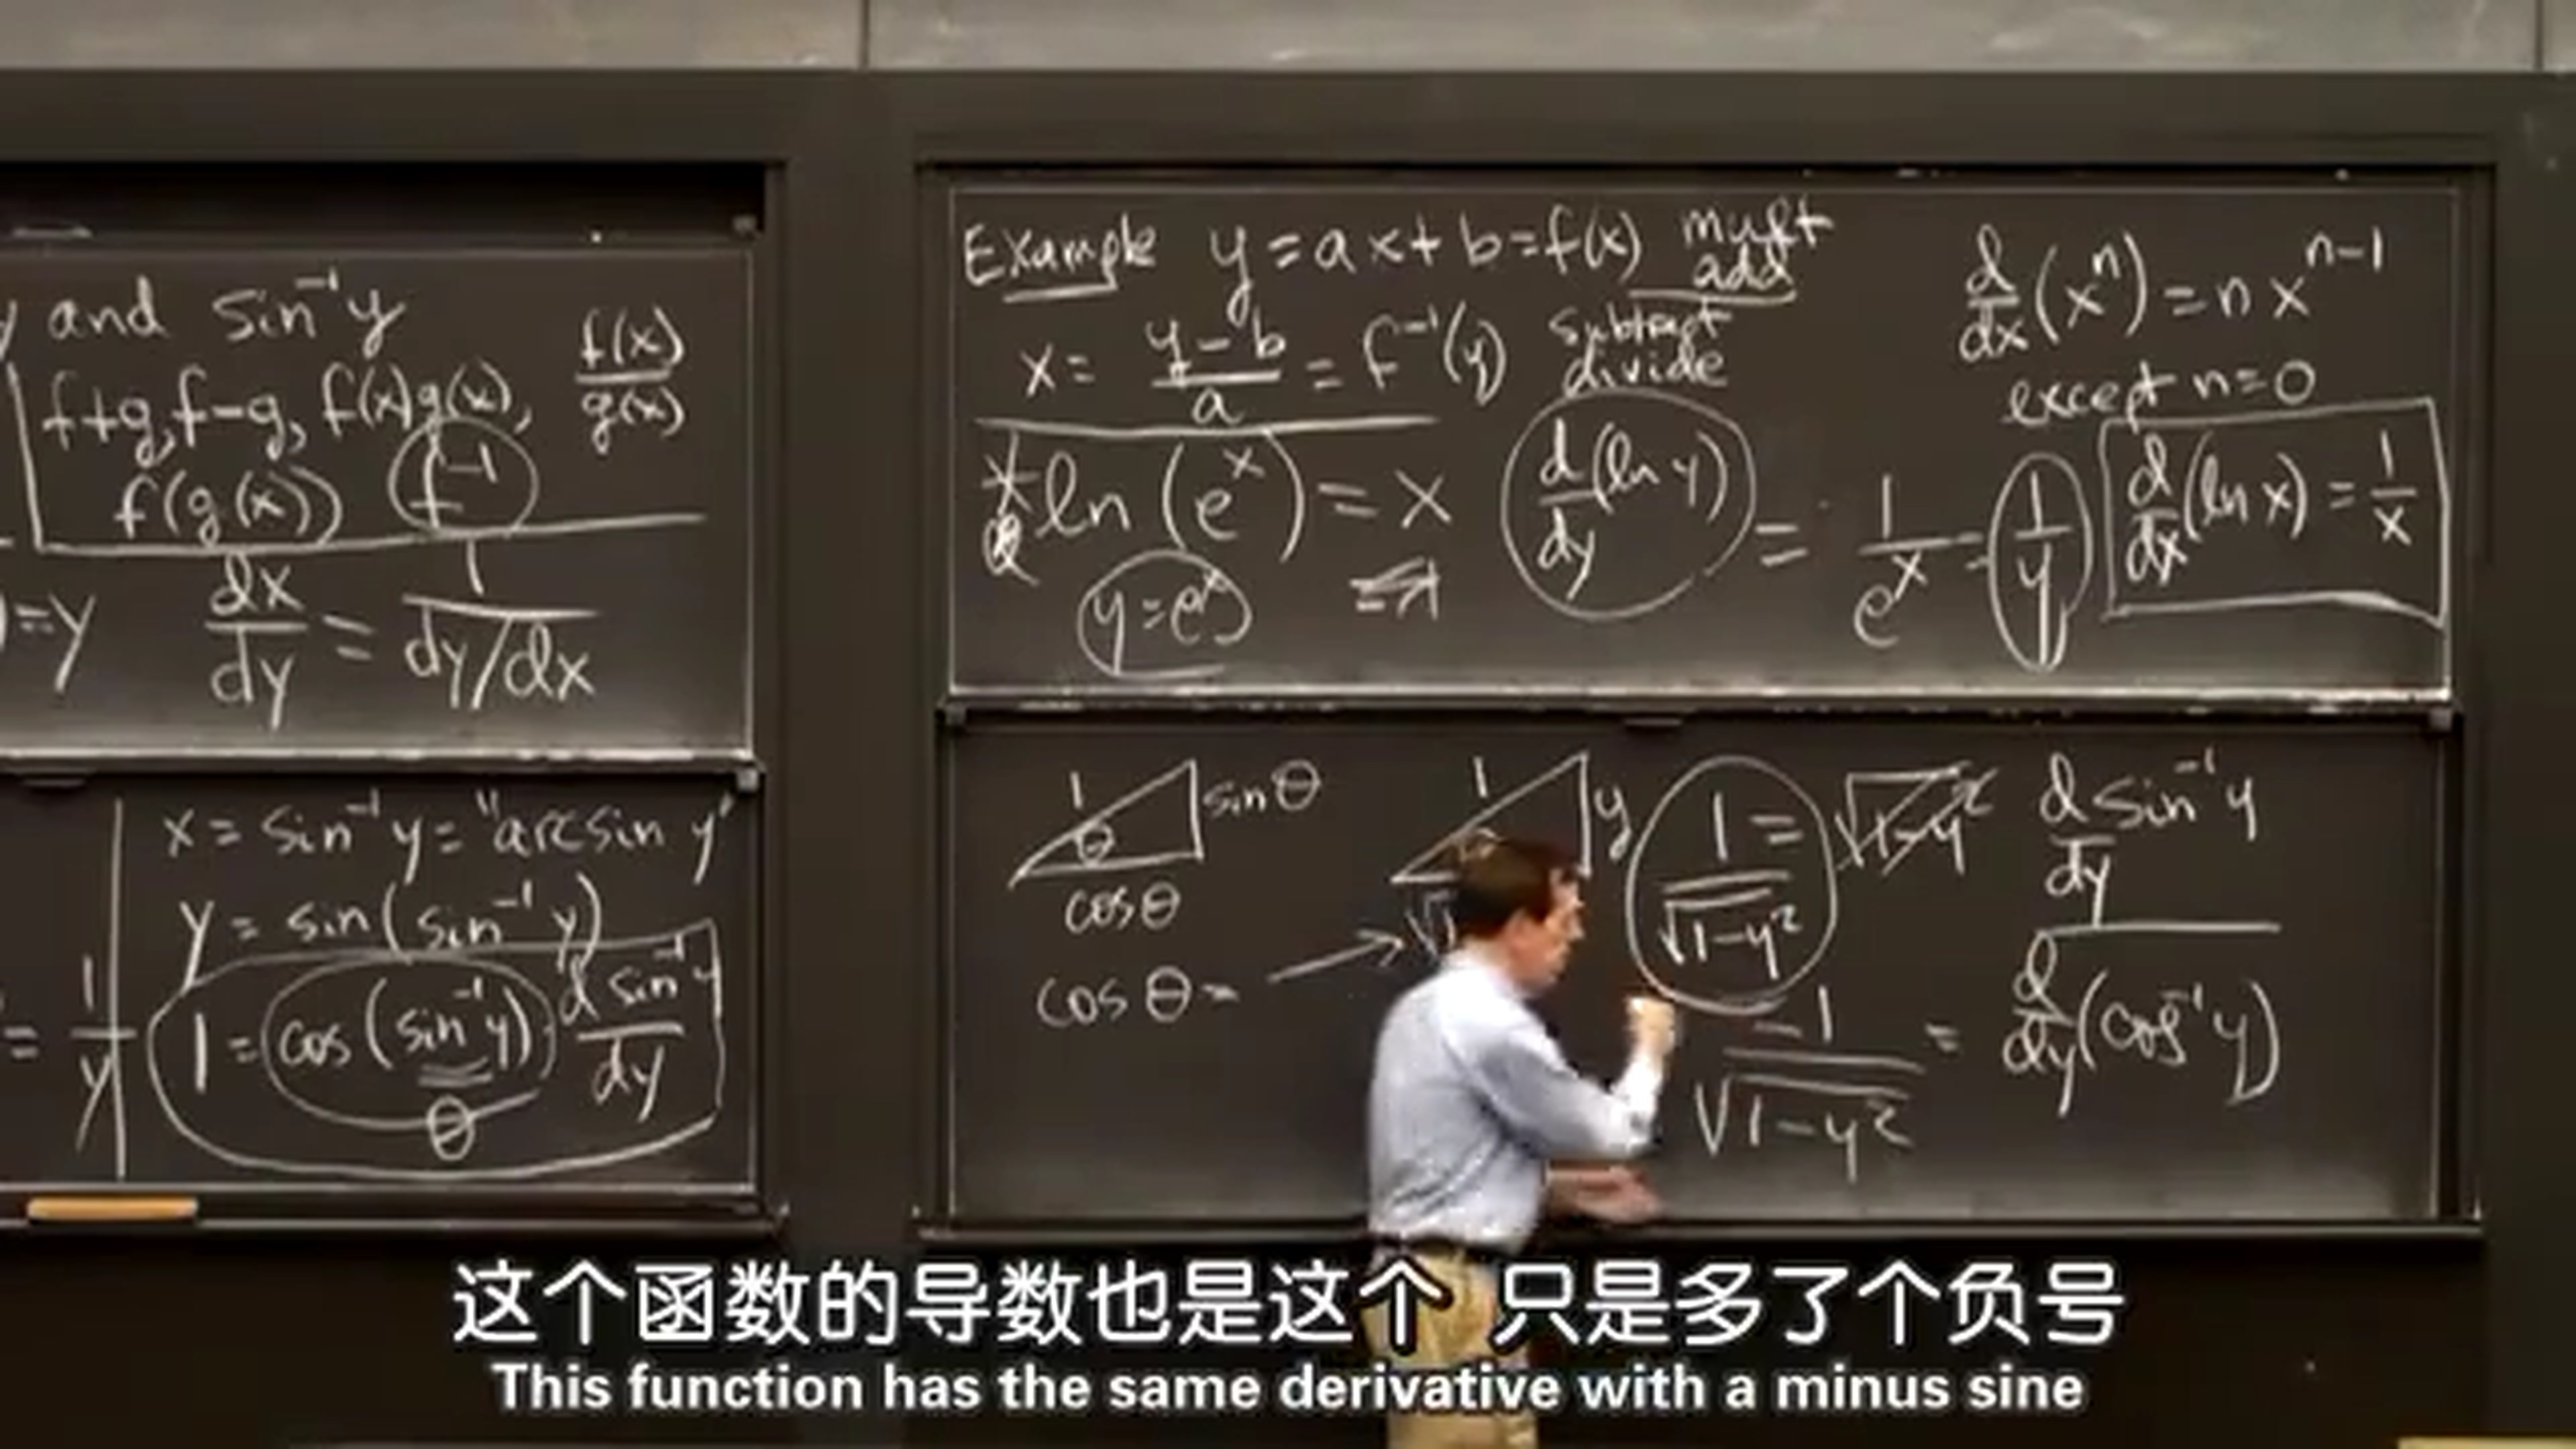 y and sin⁻¹y
f+g, f-g, f(x)g(x), f(x)/g(x)
f(g(x)) f⁻¹
)=y dx/dy = 1/(dy/dx)
x = sin⁻¹y = "arcsin y"
y = sin(sin⁻¹y)
= 1/y 1 = cos(sin⁻¹y) d sin⁻¹y/dy
θ
Example y = ax+b = f(x) mult add
x = (y-b)/a = f⁻¹(y) subtract divide
ln(eˣ) = x d/dy(ln y) = 1/eˣ = 1/y
y=eˣ
d/dx(xⁿ) = n xⁿ⁻¹
except n=0
d/dx(ln x) = 1/x
1 sin θ
θ
cos θ
cos θ =
1 y
1/√(1-y²) = √(1-y²) d/dy sin⁻¹y
-1/√(1-y²) = d/dy(cos⁻¹y)
这个函数的导数也是这个 只是多了个负号
This function has the same derivative with a minus sine